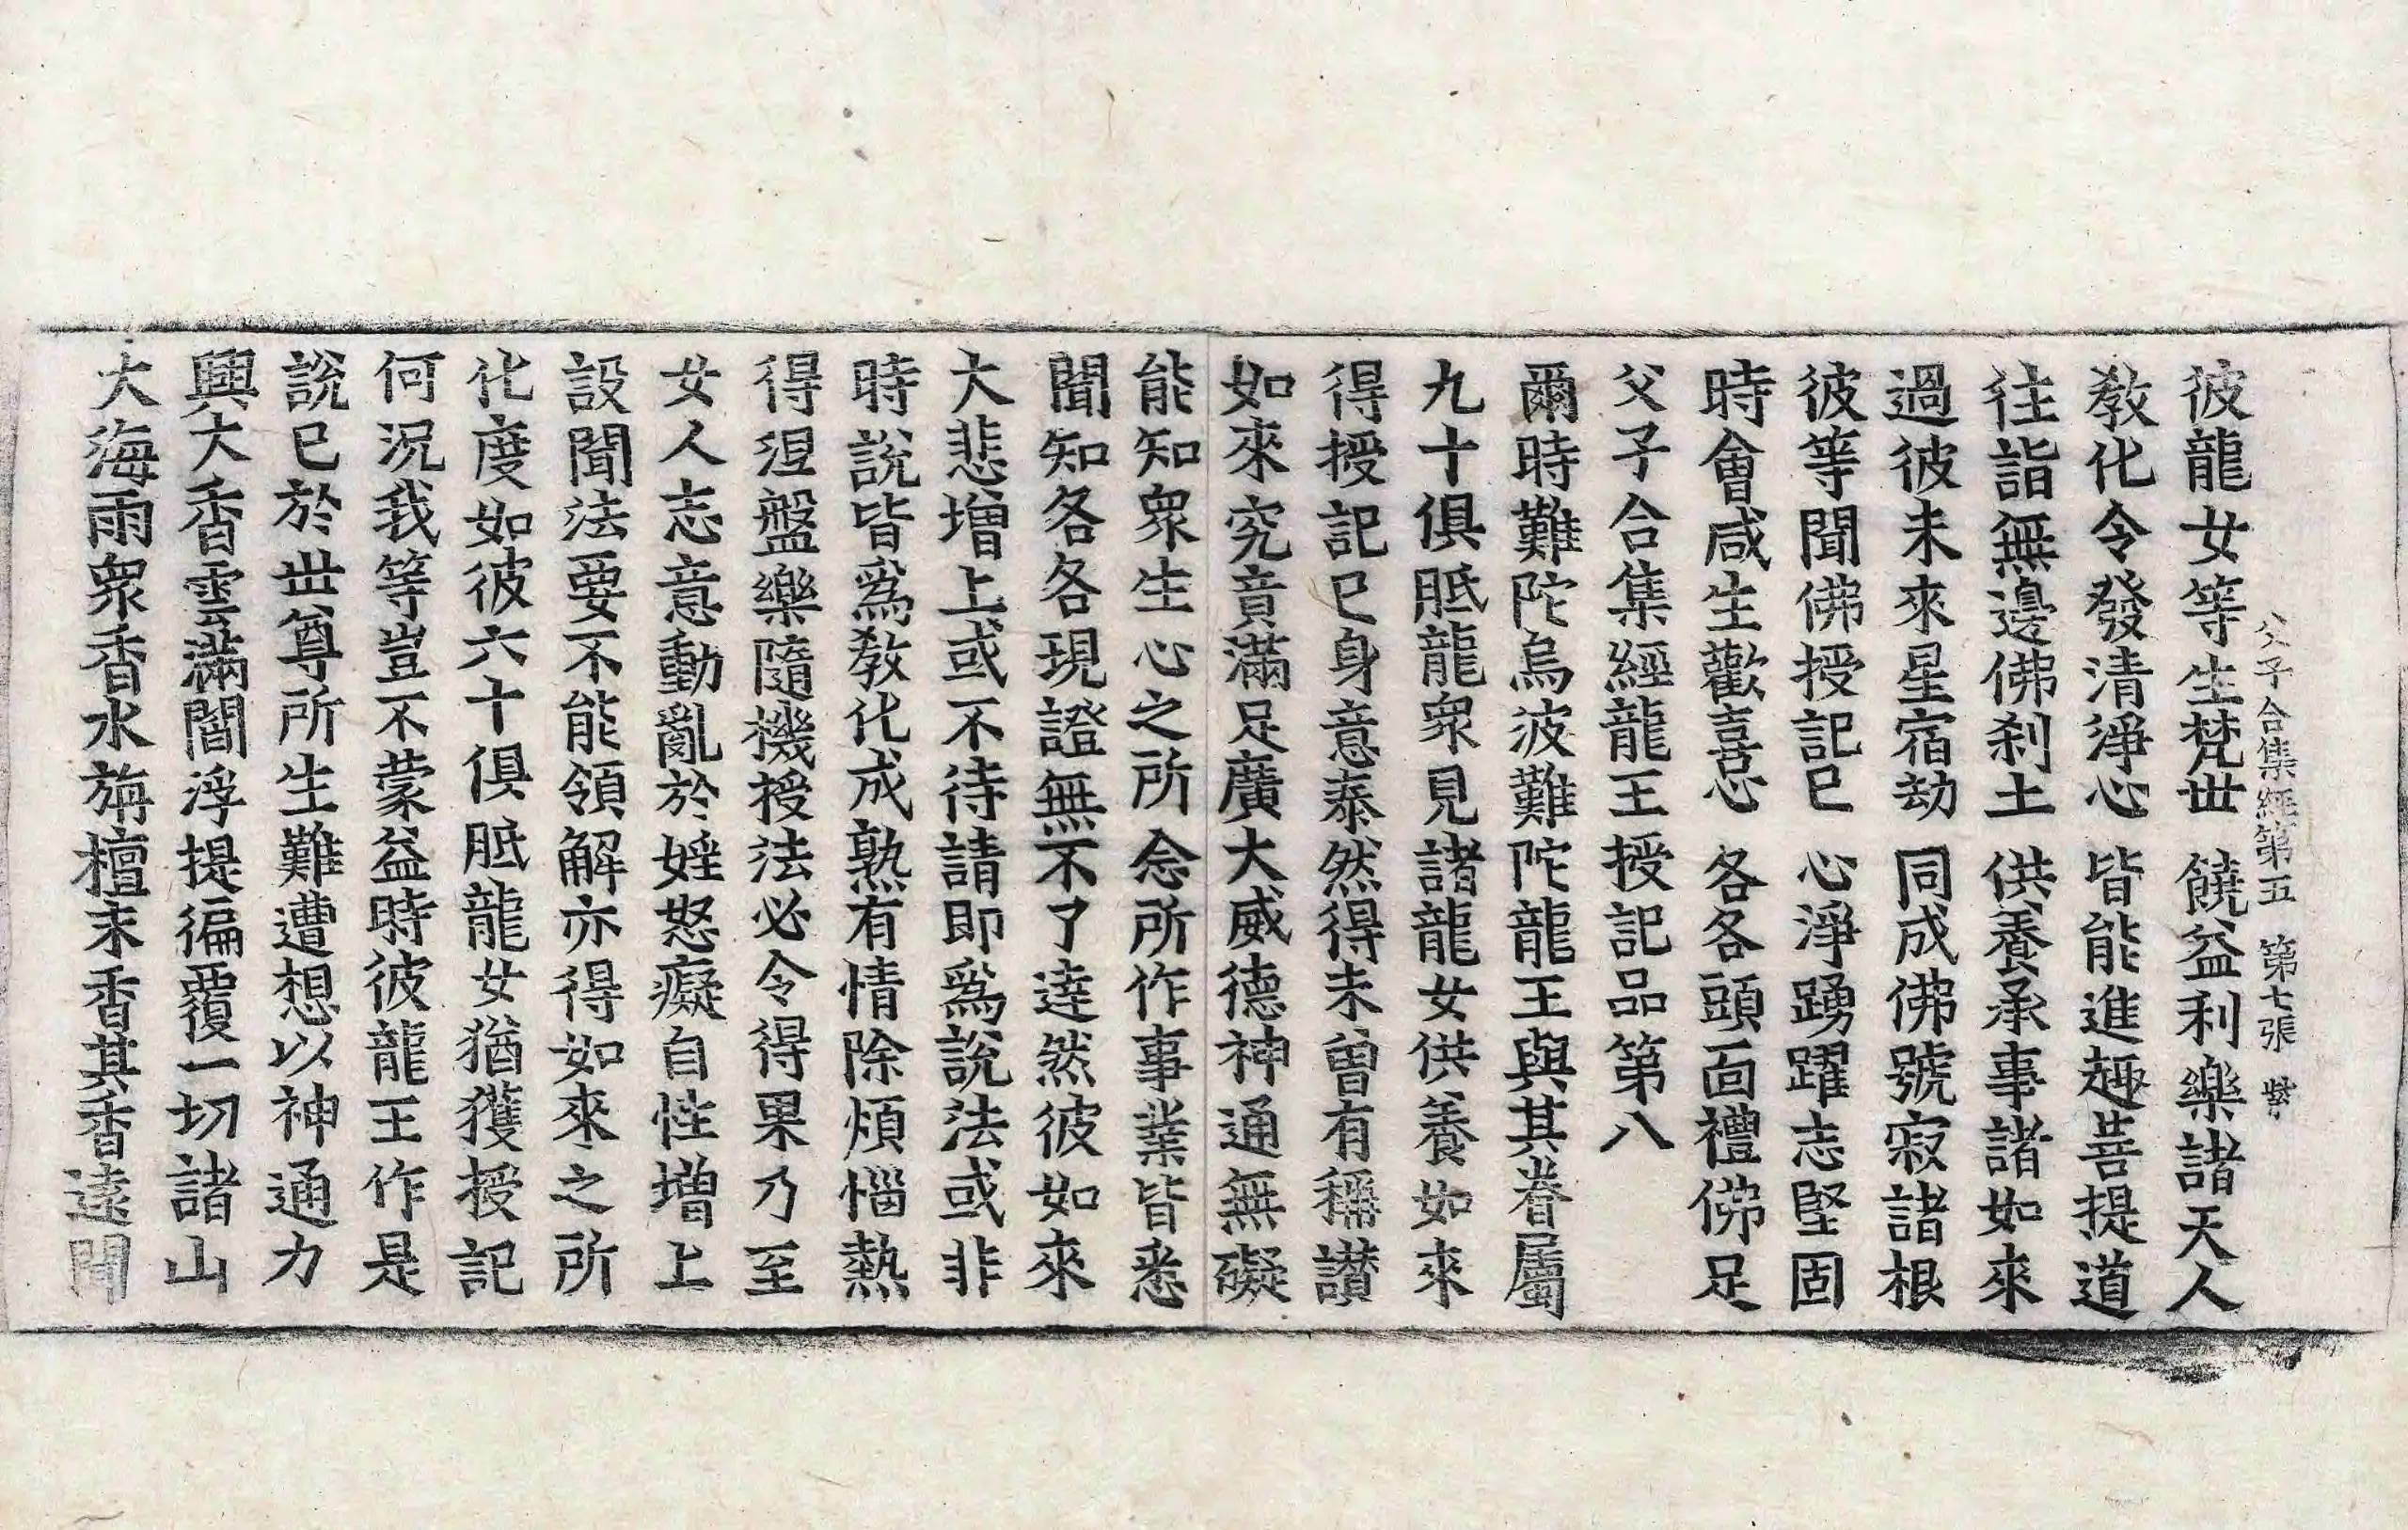 父子合集經第五 第七張 紫
彼龍女等生梵世 饒益利樂諸天人
教化令發清淨心 皆能進趣菩提道
往詣無邊佛刹土 供養承事諸如來
過彼未來星宿劫 同成佛號寂諸根
彼等聞佛授記已 心淨踴躍志堅固
時會咸生歡喜心 各各頭面禮佛足
父子合集經龍王授記品第八
爾時難陀烏波難陀龍王與其眷屬
九十俱胝龍衆見諸龍女供養如來
得授記已身意泰然得未曾有稱讃
如來究竟滿足廣大威德神通無礙
能知衆生心之所念所作事業皆悉
聞知各各現證無不了達然彼如來
大悲增上或不待請即爲說法或非
時說皆爲教化成熟有情除煩惱熱
得涅盤樂隨機授法必令得果乃至
女人志意動亂於婬怒癡自性增上
設聞法要不能領解亦得如來之所
化度如彼六十俱胝龍女猶獲授記
何況我等豈不蒙益時彼龍王作是
說已於世尊所生難遭想以神通力
興大香雲滿閻浮提徧覆一切諸山
大海雨衆香水旃檀末香其香遠聞